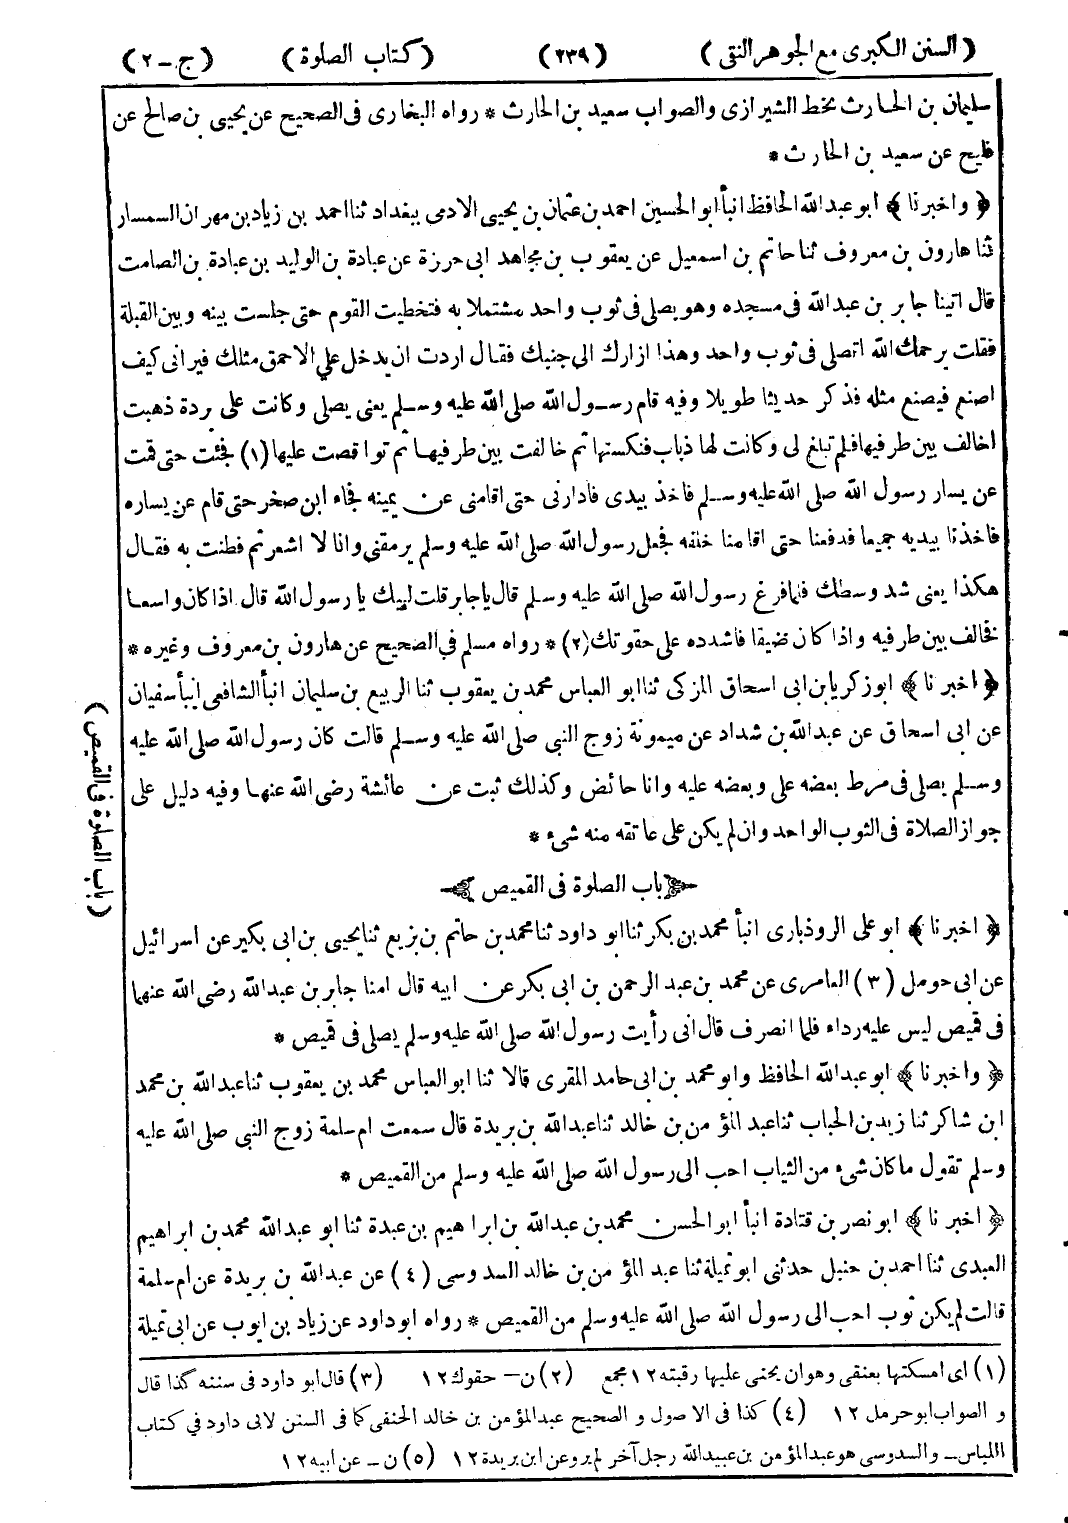 (السنن الكبرى مع الجوهر النقى) (٢٣٩) (كتاب الصلوة) (ج-٢)
سليمان بن الحارث بخط الشيرازى والصواب سعيد بن الحارث * رواه البخارى فى الصحيح عن يحيى بن صالح عن
فليح عن سعيد بن الحارث *
﴿ واخبرنا ﴾ ابو عبد الله الحافظ انبأ ابو الحسين احمد بن عثمان بن يحيى الادمى ببغداد ثنا احمد بن زياد بن مهران السمسار
ثنا هارون بن معروف ثنا حاتم بن اسمعيل عن يعقوب بن مجاهد ابى حرزة عن عبادة بن الوليد بن عبادة بن الصامت
قال اتينا جابر بن عبد الله فى مسجده وهو يصلى فى ثوب واحد مشتملا به فتخطيت القوم حتى جلست بينه وبين القبلة
فقلت يرحمك الله اتصلى فى ثوب واحد وهذا ازارك الى جنبك فقال اردت ان يدخل على الاحمق مثلك فيرانى كيف
اصنع فيصنع مثله فذكر حديثا طويلا وفيه قام رسول الله صلى الله عليه وسلم يعنى يصلى وكانت على بردة ذهبت
اخالف بين طرفيها فلم تبلغ لى وكانت لها ذباب فنكستها ثم خالفت بين طرفيها ثم تواقصت عليها (١) فجئت حتى قمت
عن يسار رسول الله صلى الله عليه وسلم فاخذ بيدى فادارنى حتى اقامنى عن يمينه فجاء ابن صخر حتى قام عن يساره
فاخذنا بيديه جميعا فدفعنا حتى اقامنا خلفه فجعل رسول الله صلى الله عليه وسلم يرمقنى وانا لا اشعر ثم فطنت به فقال
هكذا يعنى شد وسطك فلما فرغ رسول الله صلى الله عليه وسلم قال يا جابر قلت لبيك يا رسول الله قال اذا كان واسعا
فخالف بين طرفيه واذا كان ضيقا فاشدده على حقوتك (٢) * رواه مسلم فى الصحيح عن هارون بن معروف وغيره *
﴿ اخبرنا ﴾ ابو زكريا بن ابى اسحاق المزكى ثنا ابو العباس محمد بن يعقوب ثنا الربيع بن سليمان انبأ الشافعى انبأ سفيان
عن ابى اسحاق عن عبد الله بن شداد عن ميمونة زوج النبى صلى الله عليه وسلم قالت كان رسول الله صلى الله عليه
وسلم يصلى فى مرط بعضه على وبعضه عليه وانا حائض وكذلك ثبت عن عائشة رضى الله عنها وفيه دليل على
جواز الصلاة فى الثوب الواحد وان لم يكن على عاتقه منه شىء *
(باب الصلوة فى القميص)
باب الصلوة فى القميص
﴿ اخبرنا ﴾ ابو على الروذبارى انبأ محمد بن بكر ثنا ابو داود ثنا محمد بن حاتم بن بزيع ثنا يحيى بن ابى بكير عن اسرائيل
عن ابى حومل (٣) العامرى عن محمد بن عبد الرحمن بن ابى بكر عن ابيه قال امنا جابر بن عبد الله رضى الله عنهما
فى قميص ليس عليه رداء فلما انصرف قال انى رأيت رسول الله صلى الله عليه وسلم يصلى فى قميص *
﴿ واخبرنا ﴾ ابو عبد الله الحافظ وابو محمد بن ابى حامد المقرى قالا ثنا ابو العباس محمد بن يعقوب ثنا عبد الله بن محمد
ابن شاكر ثنا زيد بن الحباب ثنا عبد المؤمن بن خالد ثنا عبد الله بن بريدة قال سمعت ام سلمة زوج النبى صلى الله عليه
وسلم تقول ما كان شىء من الثياب احب الى رسول الله صلى الله عليه وسلم من القميص *
﴿ اخبرنا ﴾ ابو نصر بن قتادة انبأ ابو الحسن محمد بن عبد الله بن ابراهيم بن عبدة ثنا ابو عبد الله محمد بن ابراهيم
العبدى ثنا احمد بن حنبل حدثنى ابو تميلة ثنا عبد المؤمن بن خالد السدوسى (٤) عن عبد الله بن بريدة عن ام سلمة
قالت لم يكن ثوب احب الى رسول الله صلى الله عليه وسلم من القميص * رواه ابو داود عن زياد بن ايوب عن ابى تميلة
(١) اى امسكتها بعنقى وهو ان يحنى عليها رقبته ١٢ مجمع (٢) ن- حقوك ١٢ (٣) قال ابو داود فى سننه كذا قال
و الصواب ابو حرمل ١٢ (٤) كذا فى الاصول و الصحيح عبد المؤمن بن خالد الحنفى كما فى السنن لابى داود فى كتاب
اللباس - والسدوسى هو عبد المؤمن بن عبيد الله رجل آخر لم يرو عن ابن بريدة ١٢ (٥) ن - عن ابيه ١٢